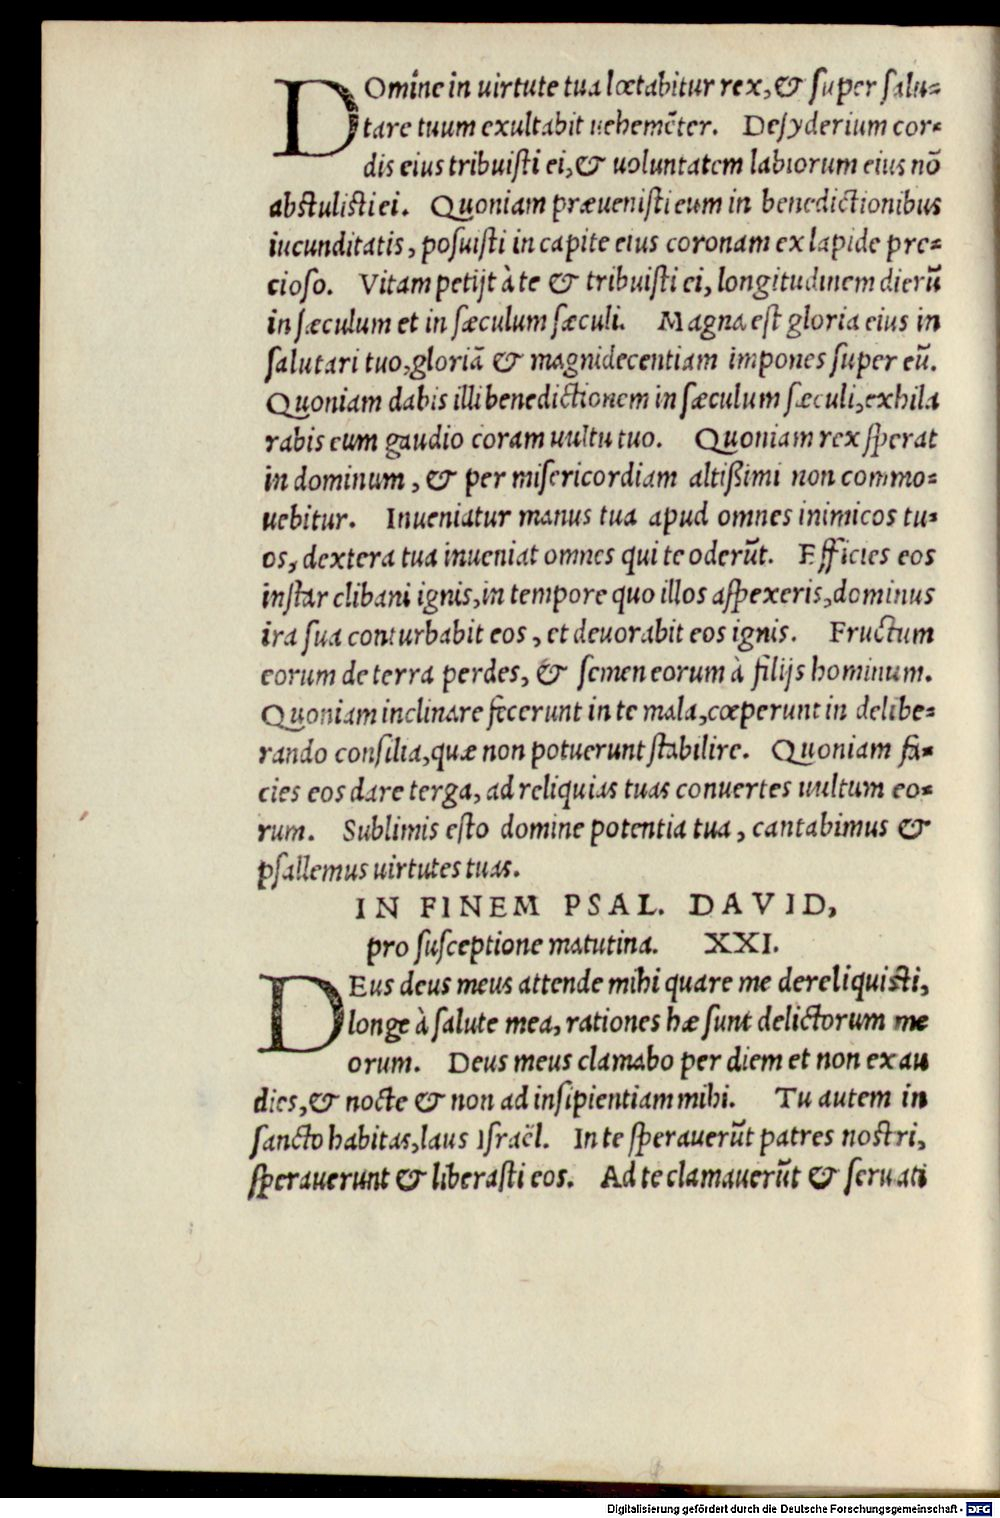 DOmine in uirtute tua lœtabitur rex, & ſuper ſalu-
tare tuum exultabit uehemẽter. Deſyderium cor-
dis eius tribuiſti ei, & uoluntatem labiorum eius nõ
abſtuliſti ei. Quoniam præueniſti eum in benedictionibus
iucunditatis, poſuiſti in capite eius coronam ex lapide pre-
cioſo. Vitam petijt à te & tribuiſti ei, longitudinem dierũ
in ſæculum et in ſæculum ſæculi. Magna eſt gloria eius in
ſalutari tuo, gloriã & magnidecentiam impones ſuper eũ.
Quoniam dabis illi benedictionem in ſæculum ſæculi, exhila
rabis eum gaudio coram uultu tuo. Quoniam rex ſperat
in dominum, & per miſericordiam altißimi non commo-
uebitur. Inueniatur manus tua apud omnes inimicos tu-
os, dextera tua inueniat omnes qui te oderũt. Efficies eos
inſtar clibani ignis, in tempore quo illos aſpexeris, dominus
ira ſua conturbabit eos, et deuorabit eos ignis. Fructum
eorum de terra perdes, & ſemen eorum à filijs hominum.
Quoniam inclinare fecerunt in te mala, cœperunt in delibe-
rando conſilia, quæ non potuerunt ſtabilire. Quoniam fa-
cies eos dare terga, ad reliquias tuas conuertes uultum eo-
rum. Sublimis eſto domine potentia tua, cantabimus &
pſallemus uirtutes tuas.
IN FINEM PSAL. DAVID,
pro ſuſceptione matutina. XXI.
DEus deus meus attende mihi quare me dereliquiſti,
longe à ſalute mea, rationes hæ ſunt delictorum me
orum. Deus meus clamabo per diem et non exau
dies, & nocte & non ad inſipientiam mihi. Tu autem in
ſancto habitas, laus Iſraël. In te ſperauerũt patres noſtri,
ſperauerunt & liberaſti eos. Ad te clamauerũt & ſeruati
Digitalisierung gefördert durch die Deutsche Forschungsgemeinschaft - DFG